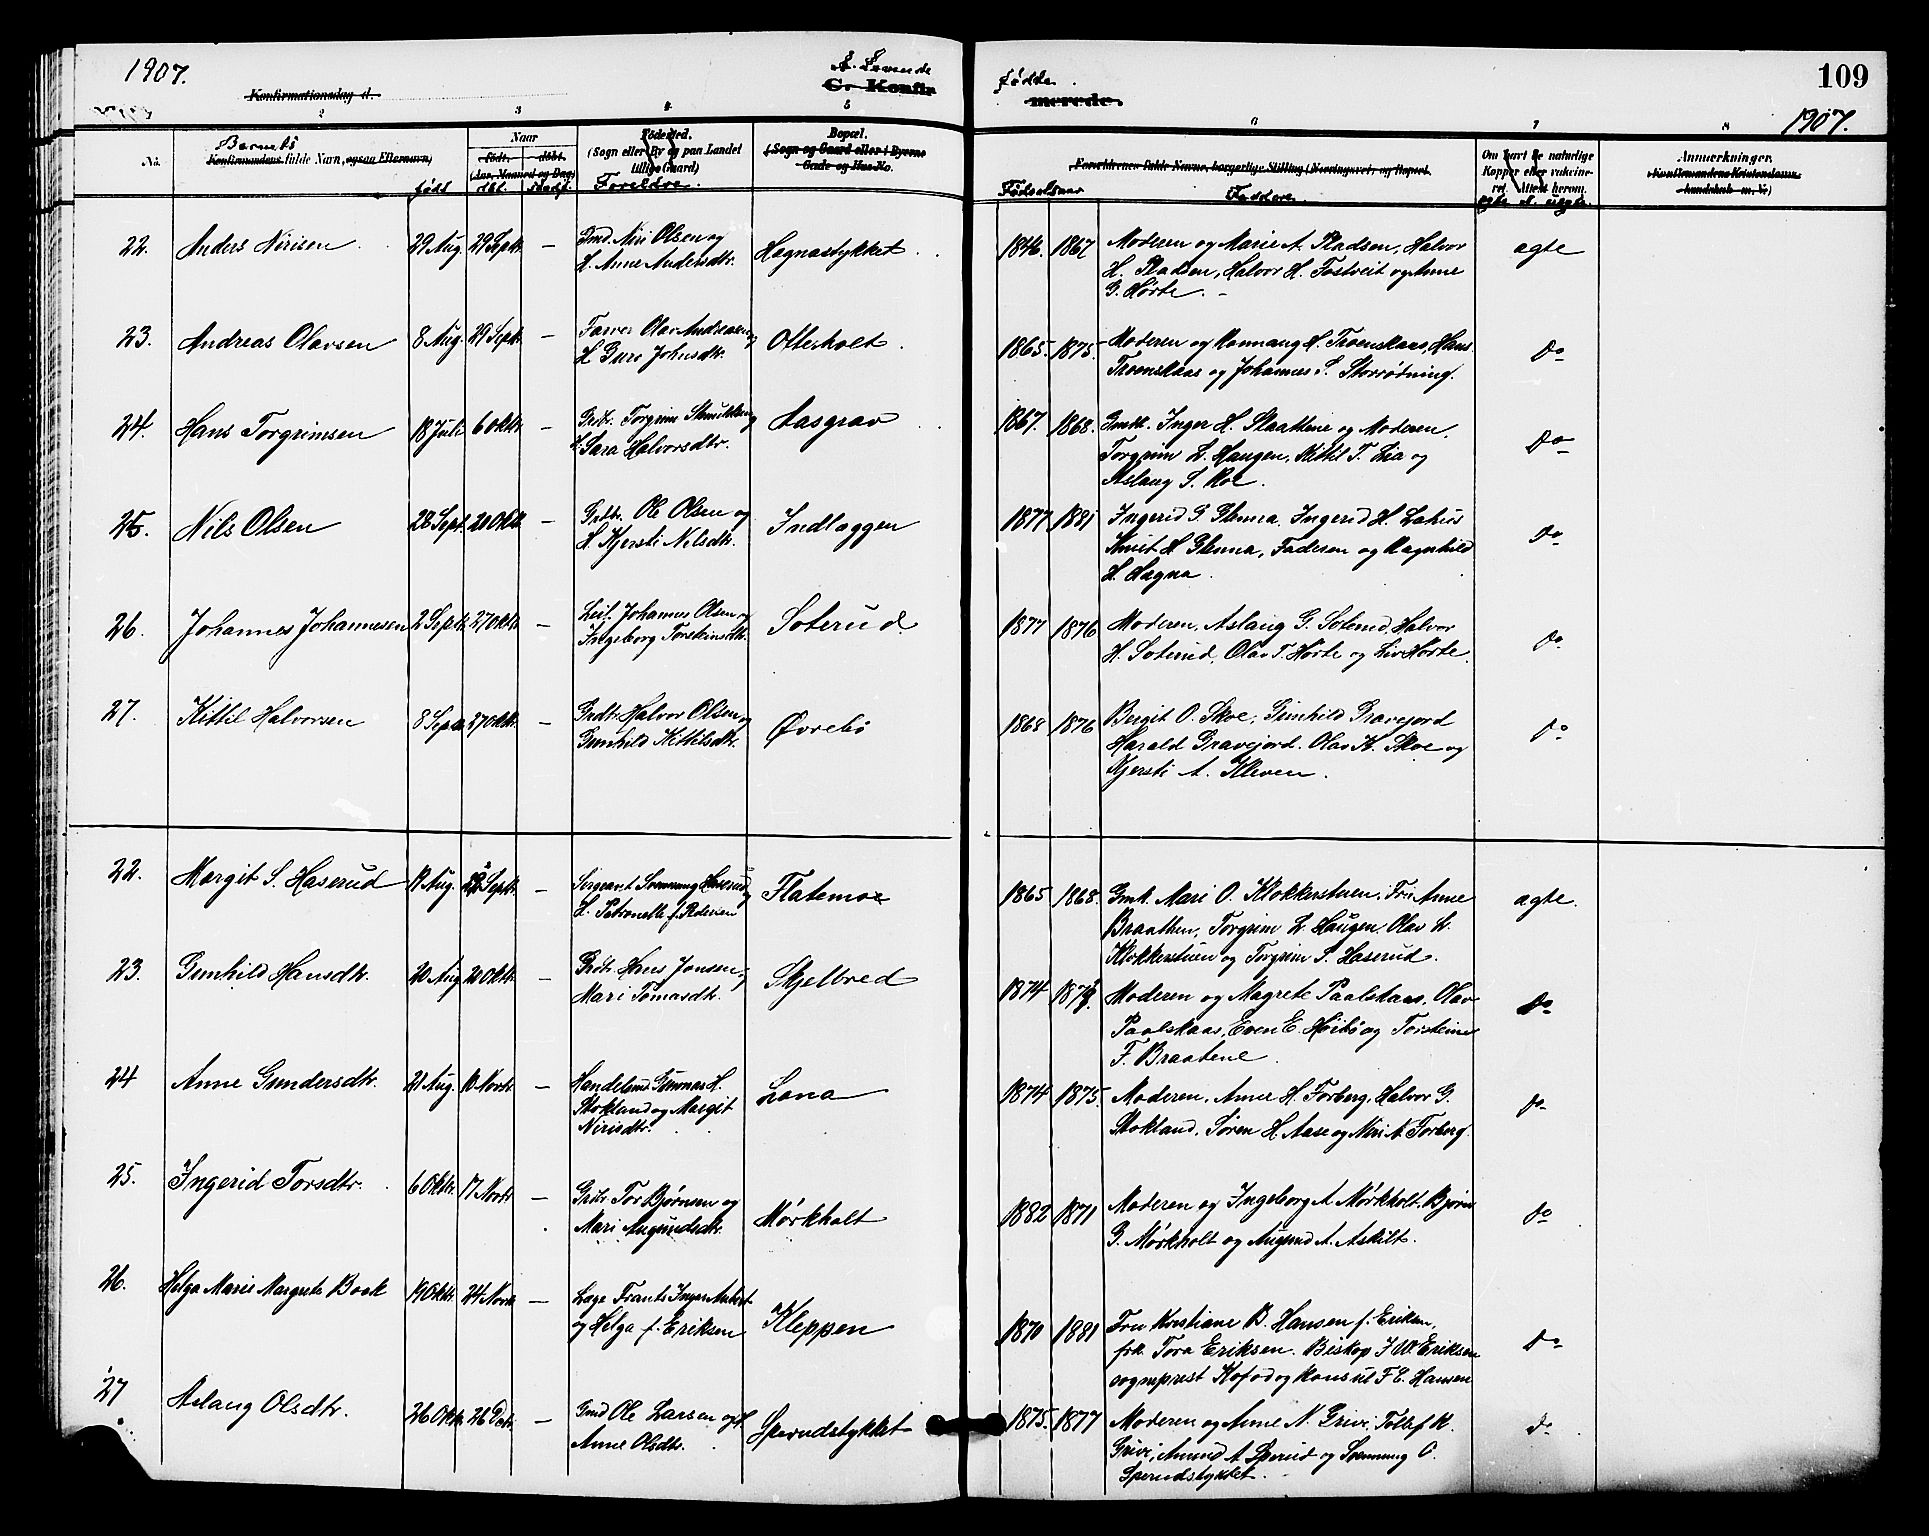 1907.
A. Levende
Fødte.
109
Konfirmationsdag d.
G. Konfir
merede.
1907.
2 3 4 5 6 7 8
No. Barnets Konfirmandens fulde Navn, ogsaa Efternavn)
født
Naar
født. døbt.
(Aar, Maaned og Dag)
dbt. stadf.
Fødested.
(Sogn eller By og paa Landet
tillige Gaard)
Foreldre.
Bopæl.
(Sogn og Gaard eller i Byerne
Gade og Hus-No.
Forældrenes fulde Navne, borgerlige Stilling (Næringsvei) og Bopæl.
Fødselsaar
Faddere.
Om havt de naturlige
Kopper eller vakcine-
ret. Attest herom.
egte el. uegte.
Anmærkninger.
(Konfirmandens Kristendoms-
kundskab m. v.)
22. Anders Nirisen 29 Aug. 29 Septr. — Gmd. Niri Olsen og
H. Anne Andersdtr. Hegnastykket 1846. 1867 Moderen og Marie A. Pladsen, Halvor
H. Pladsen, Halvor H. Fostveit og Anne
G. Hørte. egte
23. Andreas Olavsen 8 Aug. 29 Septr. — Farver Olav Andreasen og
H. Guri Johnsdtr. Otterholt 1865. 1875. Moderen og Rannaug H. Troenskaas, Hans
Troenskaas og Johannes S. Storrødning. Do
24. Hans Torgrimsen 18 Juli 6 Oktr. — Grdbr. Torgrim
H. Sara Halvorsdtr. Aasgrav 1867. 1868. Gmkt. Inger H. Slaattene og Moderen.
Torgrim L. Haugen, Kittil T. Lia og
Aslaug S. Roe. Do
25. Nils Olsen 28 Sept. 20 Okt. — Grdbr. Ole Olsen og
H. Kjersti Nilsdtr. Indlæggen 1877 1881 Ingerid G. Glenna, Ingerid H. Lahus
Knut H Glenna, Faderen og Ragnhild
H. Hegna. Do
26. Johannes Johannesen 2 Septr. 27 Oktr. — Leil. Johannes Olsen og
Ingeborg Torsteinsdtr. Soterud 1877 1876 Moderen, Aslaug G. Soterud, Halvor
H. Soterud, Olav T. Hørte og Liv Hørte. Do
27. Kittil Halvorsen 8 Septr. 27 Oktr. — Grdbr. Halvor Olsen og
Gunhild Kittilsdtr. Øvrebø 1868 1876 Bergit O. Skoe, Gunhild Gravejord
Harald Gravejord. Olav K. Skoe og
Kjersti A. Kleven. Do
22. Margit S. Haserud 17 Aug. 22 Septr. — Sergeant Svennung Haserud og
H. Petronelle f. Pedersen Flatemoe 1865 1868. Gmk. Mari O. Klokkerstuen, Fru Anne
Braathen, Torgrim L Haugen, Olav H.
Klokkerstuen og Torgrim S. Haserud. egte.
23. Gunhild Hansdtr. 20 Aug 20 Oktr. — Grdbr. Hans Jonsen og
Mari Tomasdtr. Skjelbred 1874 Moderen og Magrete Paalskaas, Olav
Paalskaas, Even E. Høibø og Torsteine
F. Braatene. Do
24 Anne Gundersdtr. 21 Aug. 10 Novbr. — Handelsmd. Gunnar H.
Stokland og Margit
Nirisdtr. Lona 1874 1875. Moderen, Anne H. Forberg, Halvor G.
Stokland, Søren H. Aase og Niri N. Forberg. Do
25. Ingerid Torsdtr. 6 Oktr. 17 Novbr. — Grdbr. Tor Bjørnsen og
Mari Augundsdtr. Mørkholt 1882 1871 Moderen og Ingeborg A. Mørkholt, Bjørn
G. Mørkholt og Augund A. Askilt. Do
26. Helga Marie Margrete Book 19 Oktr. 24 Novbr. — Læge Frants Ingvar
og Helga f. Eriksen Kleppen 1870 1881 Fru Kristiane B. Hansen f. Eriksen,
frk. Tora Eriksen. Biskop J. W. Eriksen
sogneprest Kofod og konsul F. E. Hansen Do
27 Aslaug Olsdtr. 26 Oktr. 26 Decbr. — Gmd Ole Larsen og H.
Anne Olsdtr. Sperudstykket 1875. 1877 Moderen og Anne N. Grivi, Tollef K.
Grivi, Amund A Sperud og Svennung O.
Sperudstykket. Do